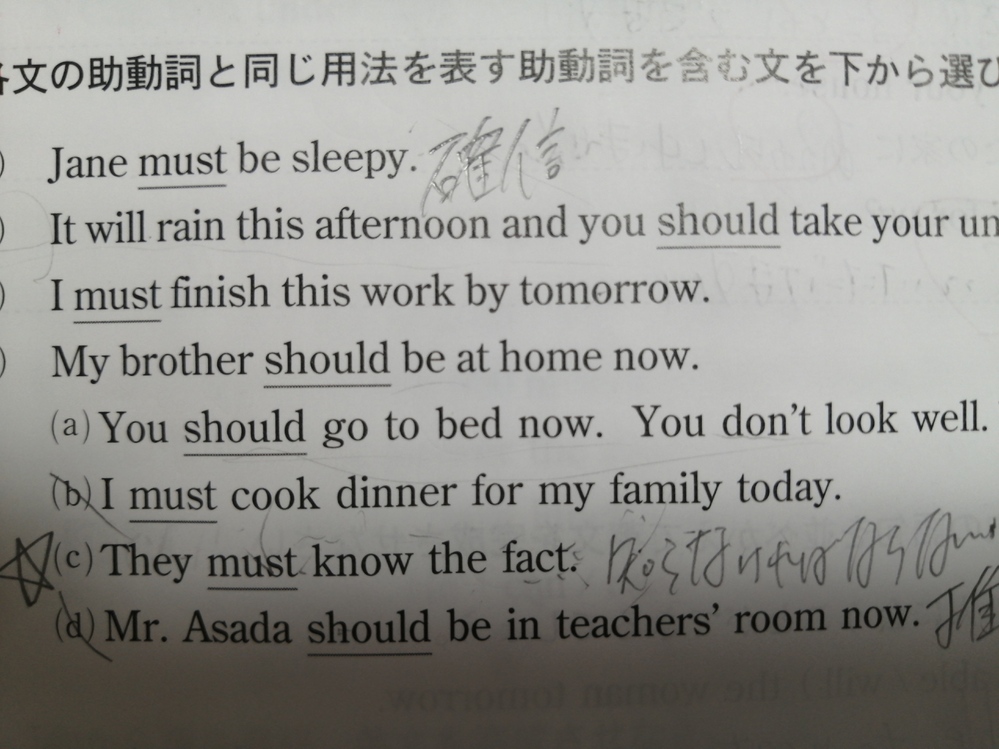 各文の助動詞と同じ用法を表す助動詞を含む文を下から選び
) Jane must be sleepy. 確信
) It will rain this afternoon and you should take your um
) I must finish this work by tomorrow.
) My brother should be at home now.
(a) You should go to bed now. You don't look well.
(b) I must cook dinner for my family today.
(c) They must know the fact. 知らなければならない
(d) Mr. Asada should be in teachers' room now. 推